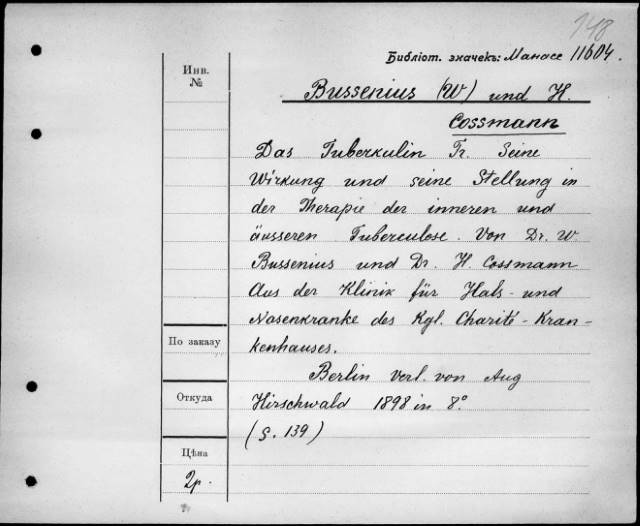 148
Библіот. значекъ: Манасе 11604.
Инв.
№
Bussenius (W) und H.
Cossmann
Das Tuberkulin Tr. Seine
Wirkung und seine Stellung in
der Therapie der inneren und
äusseren Tuberculose. Von Dr. W.
Bussenius und Dr. H. Cossmann
Aus der Klinik für Hals- und
Nasenkranke des Kgl. Charité-Kran-
kenhauses.
По заказу
Berlin Verl. von Aug
Откуда
Hirschwald 1898 in 8°
(S. 139)
Цѣна
2р.